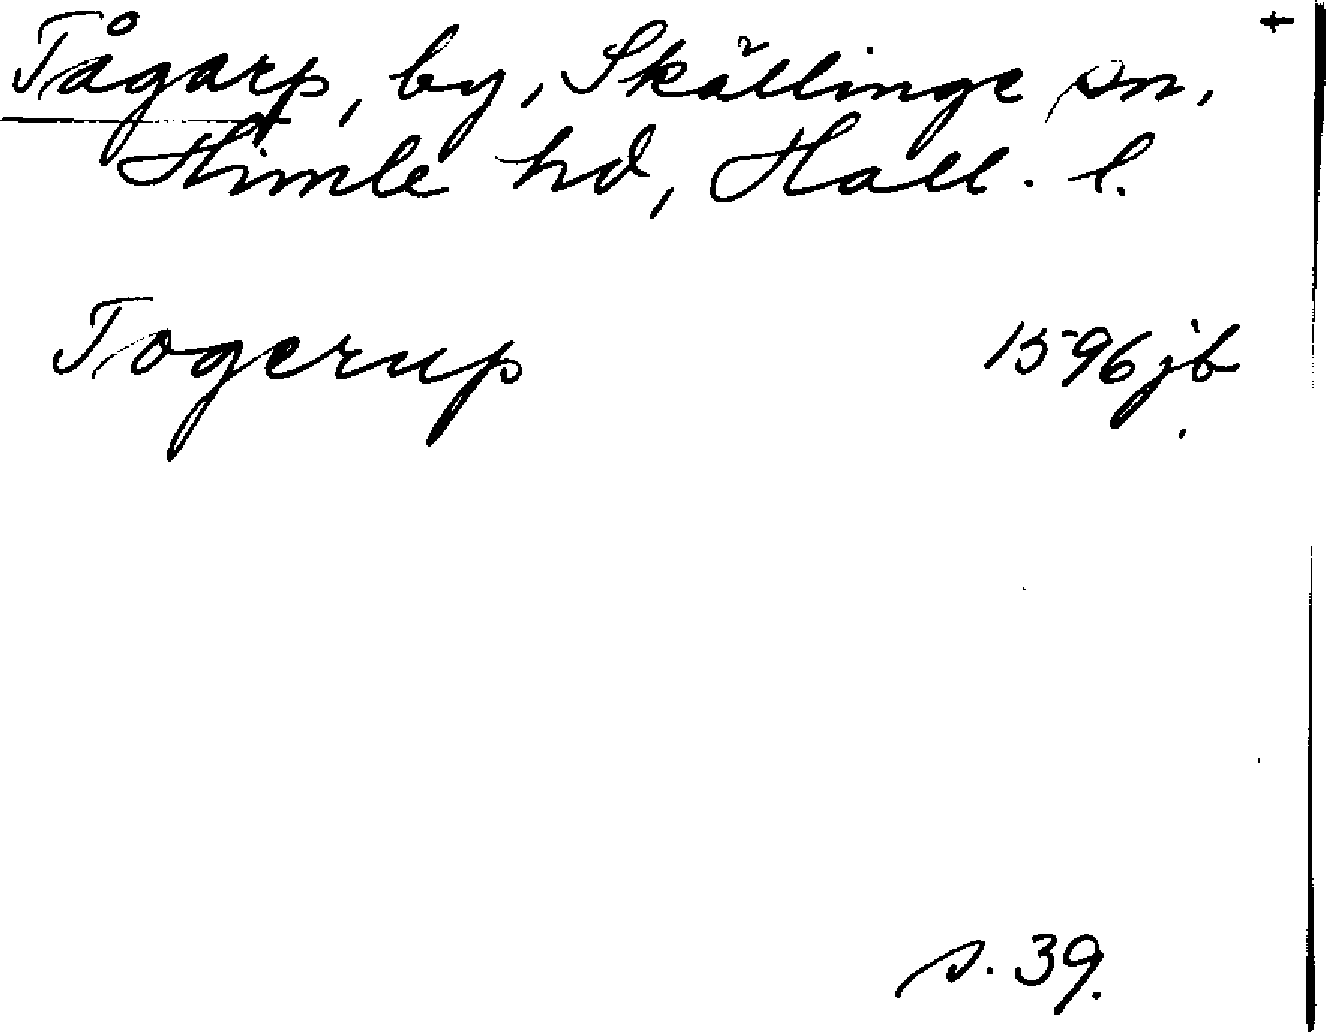 +
Tågarp, by, Skällinge sn,
Himle hd, Hall. l.
Togerup 1596 jb
s. 39.